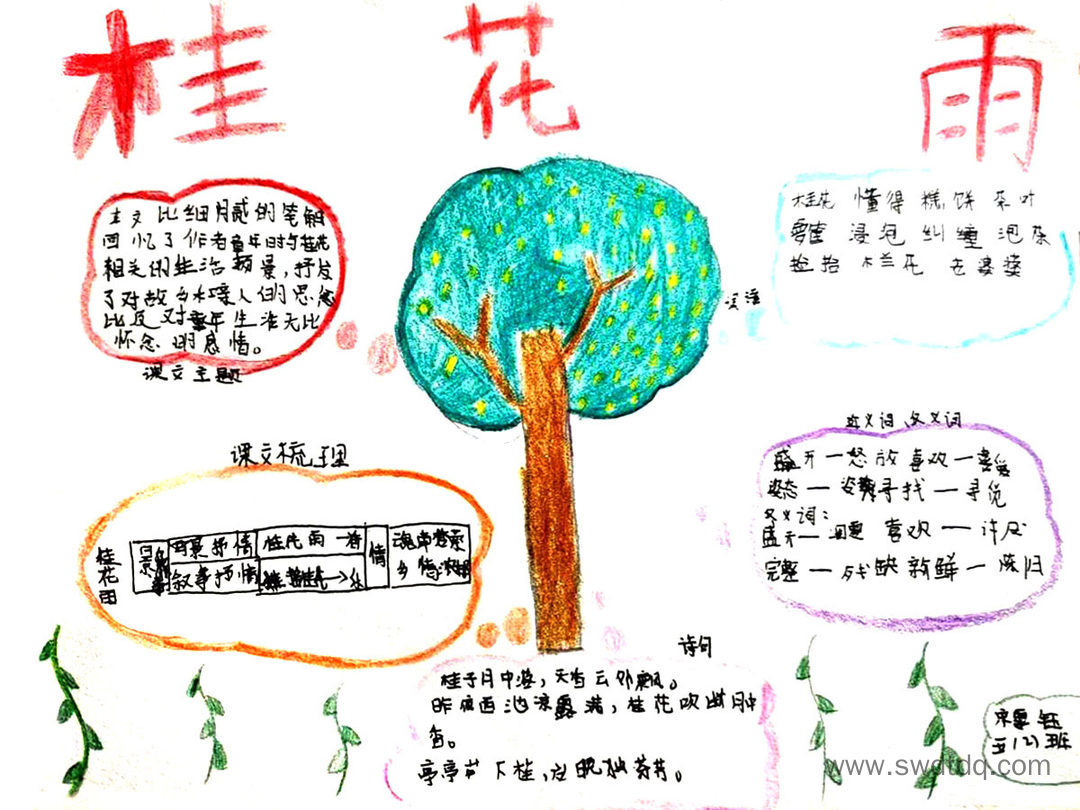 桂花雨
本文以细月感的笔触
回忆了作者童年时与桂花
相关的生活场景，抒发
了对故乡水喝人的思念
以及对童年生活无比
怀念的感情。
课文主题
桂花 懂得 糕饼 茶叶
浸泡 纠缠 泡茶
捡拾 木兰花 老婆婆
词语
课文梳理
桂花雨
景 抒情 桂花雨 香
叙事抒情
情
近义词 反义词
盛开一怒放 喜欢一喜爱
姿态一姿势 寻找一寻觅
反义词：
盛开一凋 喜欢一讨厌
完整一残缺 新鲜一陈旧
诗句
桂子月中落，天香云外飘。
昨夜西池凉露满，桂花吹断月中
香。
亭亭岩下桂，岁晚独芬芳。
五(2)班
www.swdtdq.com